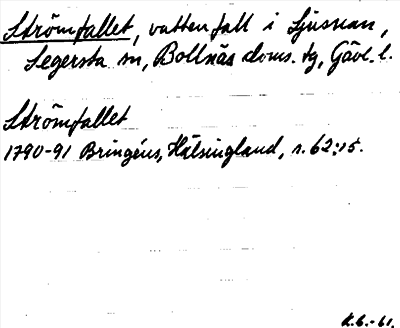 Strömfallet, vattenfall i Ljusnan,
Segersta sn, Bollnäs doms. tg, Gävl. l.
Strömfallet
1790-91 Bringéus, Hälsingland, s. 62:15.
K.G.-61.